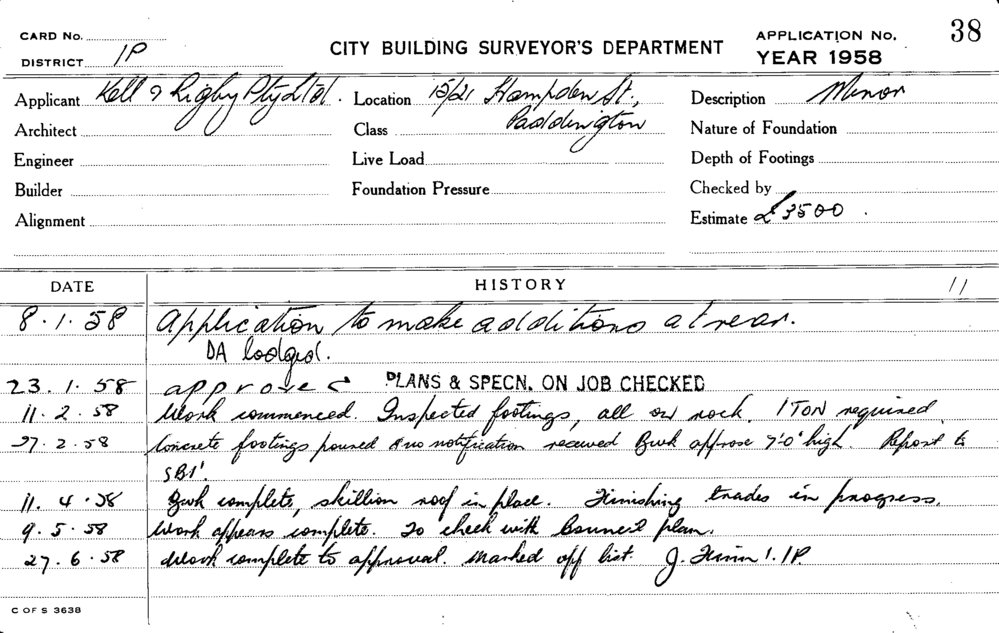 CARD No.
DISTRICT 1P
CITY BUILDING SURVEYOR'S DEPARTMENT
APPLICATION No. 38
YEAR 1958
Applicant Kell & Rigby Pty Ltd. Location 15/21 Hampden St., Description Minor
Architect Class Paddington Nature of Foundation
Engineer Live Load Depth of Footings
Builder Foundation Pressure Checked by
Alignment Estimate £3500.
DATE HISTORY 11
8.1.58 Application to make additions at rear.
DA lodged.
23.1.58 approved PLANS & SPECN. ON JOB CHECKED
11.2.58 Work commenced. Inspected footings, all on rock. 1 TON required
27.2.58 Concrete footings poured & no notification received Bwk approx 7'-0" high. Report to
SBI.
11.4.58 Bwk complete, skillion roof in place. Finishing trades in progress.
9.5.58 Work appears complete. To check with Council plan.
27.6.58 Work complete to approval. Marked off list. J. 1.1P.
C OF S 3638